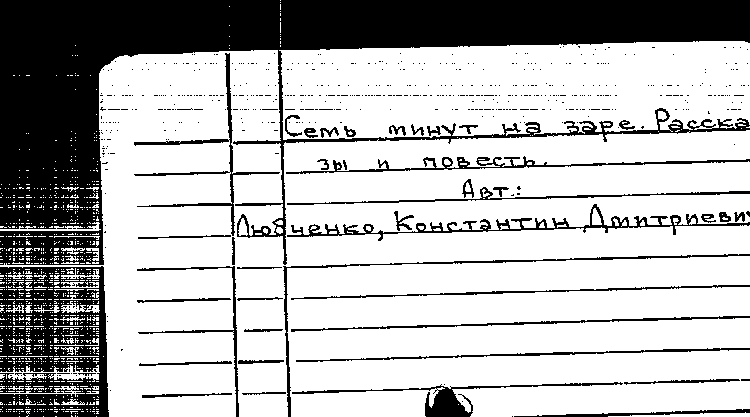 Семь минут на заре. Расска
зы и повесть.
Авт.:
Любченко, Константин Дмитриеви